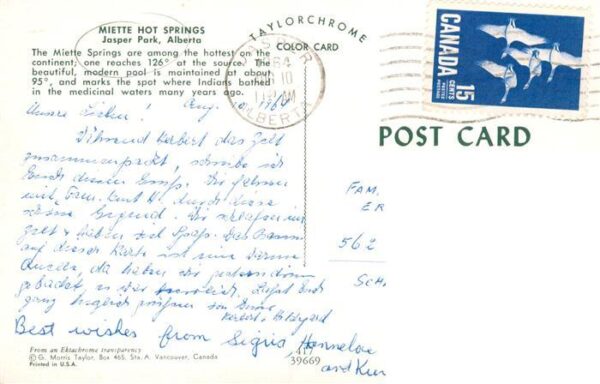 MIETTE HOT SPRINGS
Jasper Park, Alberta
The Miette Springs are among the hottest on the
continent; one reaches 126° at the source. The
beautiful, modern pool is maintained at about
95°, and marks the spot where Indians bathed
in the medicinal waters many years ago.
TAYLORCHROME
COLOR CARD
JASPER
64
10
AM
ALBERTA
CANADA
15
CENTS
POSTES
POSTAGE
POST CARD
Unsere Lieben! Aug. 10, 1964
Während Herbert das Zelt
zusammenpackt, schreibe ich
Euch diesen Gruß. Wir fahren
mit Fam. Kurt H. durch diese
schöne Gegend. Wir schlafen im
Zelt & haben viel Spaß. Das
auf dieser Karte ist eine
Quelle, da haben wir
gebadet, es war Laßt Euch
ganz herzlich grüßen von Eure
Herbert & Hildegard
Best wishes from Sigrid, Hannelore
and Kurt
FAM.
ER
562
SCH.
From an Ektachrome transparency
© G. Morris Taylor, Box 465, Sta. A. Vancouver, Canada
Printed in U.S.A.
417
39669